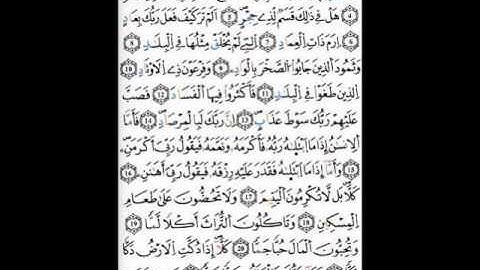 (4) هَلْ فِے ذَٰلِكَ قَسَمٌ لِّذِے حِجْرٍ (5) اَلَمْ تَرَ كَيْفَ فَعَلَ رَبُّكَ بِعَادٍ
(6) اِرَمَ ذَاتِ اِ۬لْعِمَادِ (7) اِ۬لتِے لَمْ يُخْلَقْ مِثْلُهَا فِے اِ۬لْبِلَٰدِ (8)
وَثَمُودَ اَ۬لذِينَ جَابُوا اُ۬لصَّخْرَ بِالْوَادِ (9) وَفِرْعَوْنَ ذِے اِ۬لَاوْتَادِ (10)
اِ۬لذِينَ طَغَوْا فِے اِ۬لْبِلَٰدِ (11) فَأَكْثَرُوا فِيهَا اَ۬لْفَسَادَ (12) فَصَبَّ
عَلَيْهِمْ رَبُّكَ سَوْطَ عَذَابٍ (13) اِنَّ رَبَّكَ لَبِالْمِرْصَادِ (14) فَأَمَّا
اَ۬لِانسَٰنُ إِذَا مَا اَ۪بْتَلَيٰهُ رَبُّهُۥ فَأَكْرَمَهُۥ وَنَعَّمَهُۥ فَيَقُولُ رَبِّيَ أَكْرَمَنِ
(15) وَأَمَّا إِذَا مَا اَ۪بْتَلَيٰهُ فَقَدَرَ عَلَيْهِ رِزْقَهُۥ فَيَقُولُ رَبِّيَ أَهَٰنَنِ (16)
كَلَّا بَل لَّا تُكْرِمُونَ اَ۬لْيَتِيمَ (17) وَلَا تَحُضُّونَ عَلَىٰ طَعَامِ
اِ۬لْمِسْكِينِ (18) وَتَاكُلُونَ اَ۬لتُّرَاثَ أَكْلًا لَّمًّا (19)
وَتُحِبُّونَ اَ۬لْمَالَ حُبًّا جَمًّا (20) كَلَّا إِذَا دُكَّتِ اِ۬لَارْضُ دَكًّا